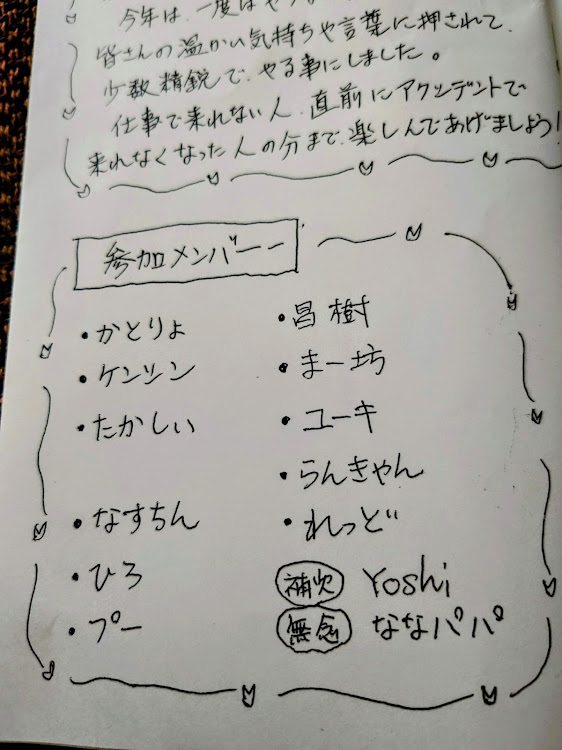 今年は、一度は
皆さんの温かい気持ちや言葉に押されて、
少数精鋭で、やる事にしました。
仕事で来れない人、直前にアクシデントで
来れなくなった人の分まで、楽しんであげましょう!
参加メンバー
・かとりょ
・ケンシン
・たかしぃ
・なすちん
・ひろ
・プー
・昌樹
・まー坊
・ユーキ
・らんきゃん
・れっど
補欠 Yoshi
無念 ななパパ